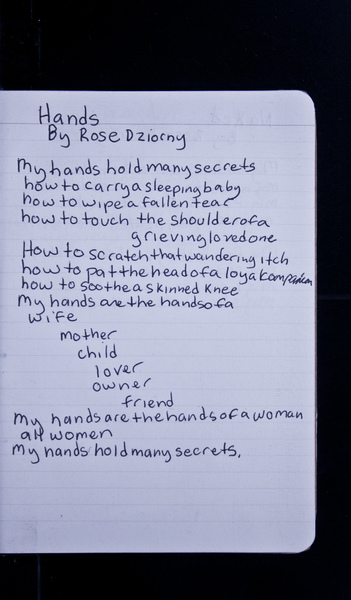 Hands
By Rose Dziorny
My hands hold many secrets
how to carry a sleeping baby
how to wipe a fallen tear
how to touch the shoulder of a
grieving loved one
How to scratch that wandering itch
how to pat the head of a loyal companion
how to soothe a skinned knee
My hands are the hands of a
wife
mother
child
lover
owner
friend
My hands are the hands of a woman
all women
My hands hold many secrets.